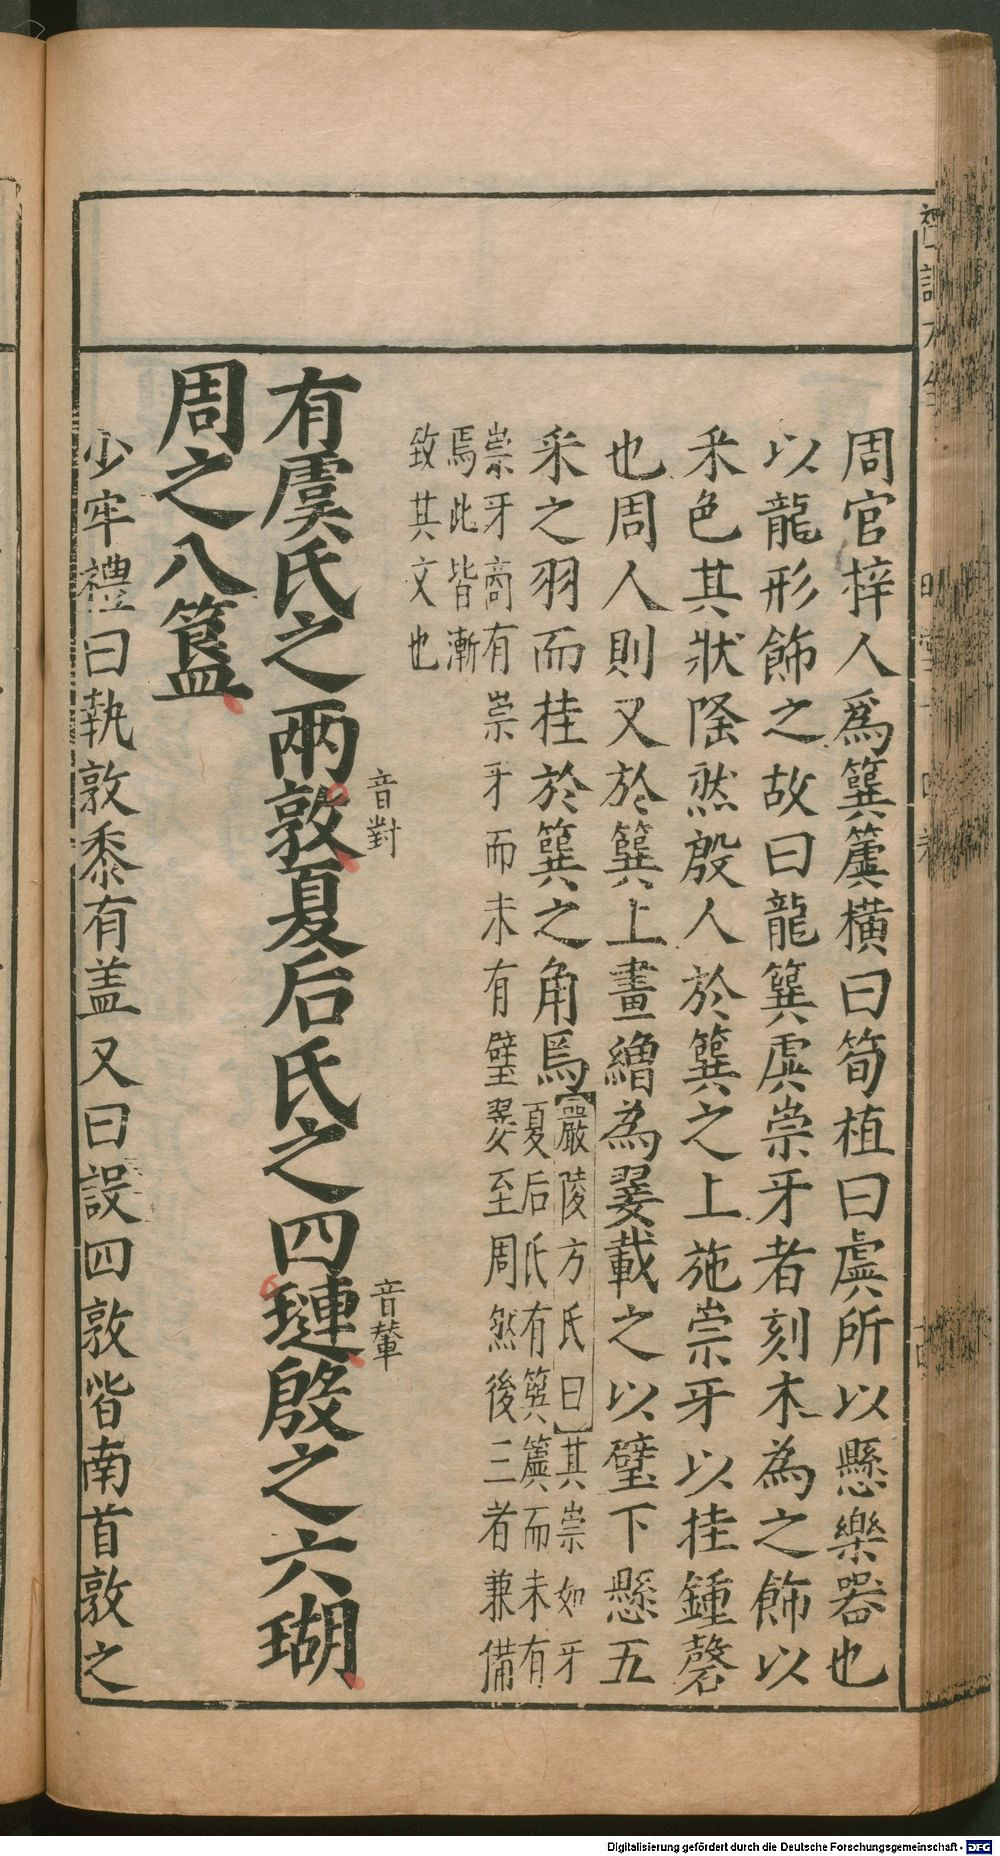 周官梓人爲簨簴橫曰筍植曰虡所以懸樂器也
以龍形飾之故曰龍簨虡崇牙者刻木為之飾以
采色其狀隆然殷人於簨之上施崇牙以挂鍾磬
也周人則又於簨上畫繒為翣載之以璧下懸五
采之羽而挂於簨之角焉
嚴陵方氏曰其崇如牙
夏后氏有簨簴而未有
崇牙商有崇牙而未有璧翣至周然後三者兼備
焉此皆漸
致其文也
有虞氏之兩敦夏后氏之四璉殷之六瑚
音對
音輦
周之八簋
少牢禮曰執敦黍有盖又曰設四敦皆南首敦之
Digitalisierung gefördert durch die Deutsche Forschungsgemeinschaft - DFG